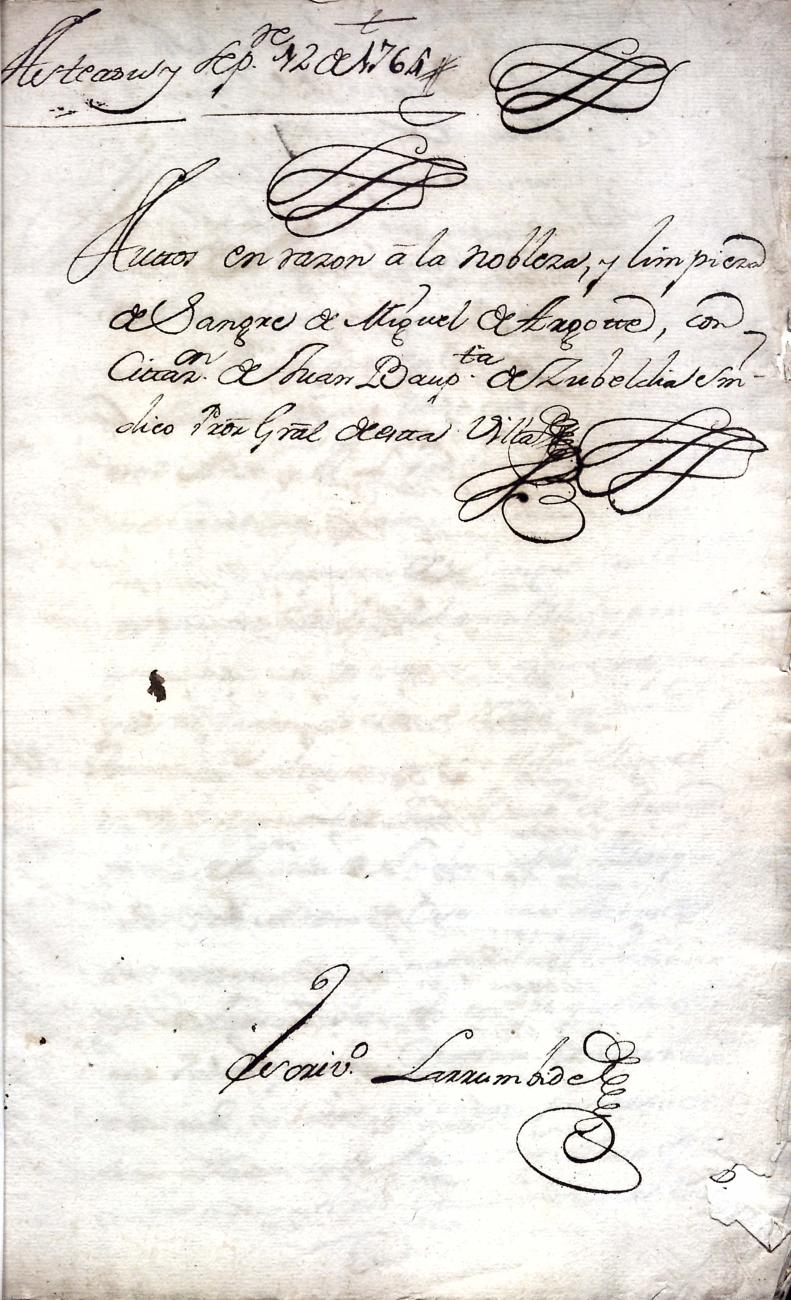 Asteasu y Sep.re 12 de 1764
Auttos en razon â la nobleza, y limpieza
de Sangre de Miguel de Argotte, con
Cittaz.on de Juan Baup.ta de Zubeldia Sin-
dico Pror Gral de estta Villa
Escriv.o Larrumbide